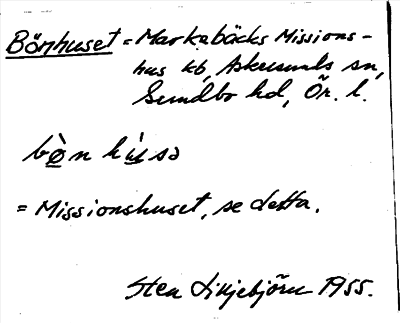 Bönhuset = Markabäcks Missions-
hus kb, Askersunds sn,
Sundbo hd, Ör. l.
bø̀n hùsə
= Missionshuset, se detta.
Sten Liljebjörn 1955.